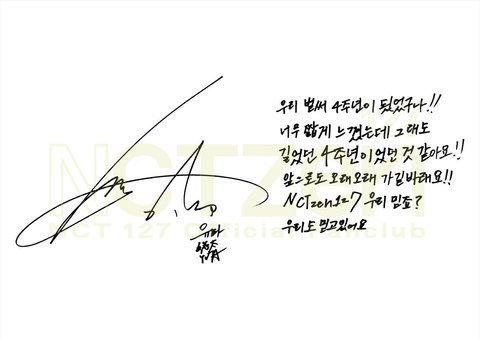 우리 벌써 4주년이 됬었구나!!
너무 짧게 느꼈는데 그래도
길었던 4주년이었던 것 같아요!!
앞으로도 오래오래 가길바래요!!
NCTzen127 우리 믿죠?
우리도 믿고있어요
유타
NCTZEN
NCT 127 Official Fanclub